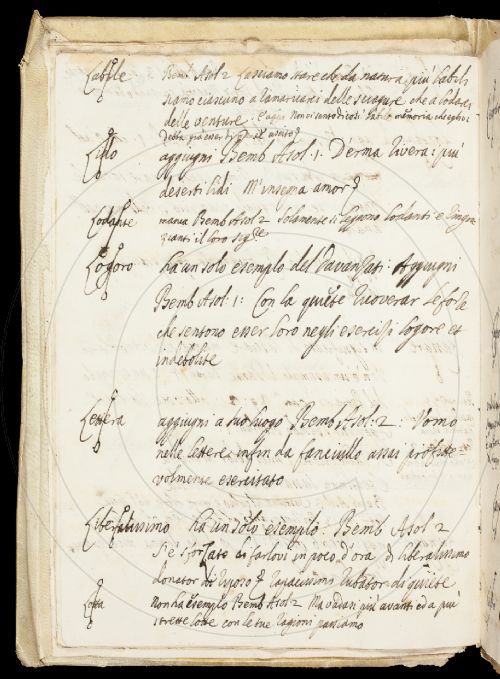 Labile Bemb. Asol 2 Lasciamo stare che da natura più labili
siamo ciascuno a ramaricarci delle sciagure che a lodarci
delle venture.
detta già esser
Lido aggiugni Bemb Asol: 1. D'erma riviera: più
deserti lidi M'insegna amor
Lodante manca Bemb Asol 2 Solamente si leggono lodanti e ringra
zianti il loro Sig.re
Logoro ha un solo esempio del Davanzati. Aggiugni
Bemb Asol: 1: Con la quiete ricoverar le forze
che sentono esser loro negli esercizi logore et
indebolite
Lettera aggiugni a suo luogo Bemb Asol: 2: Uomo
nelle lettere infin da fanciullo assai profitte
volmente esercitato
Liberalissimo ha un solo esempio. Bemb Asol 2
s'è sforzato di farlovi in poco d'ora di liberalissimo
donator di riposo rapacissimo rubator di quiete
Lotta Non ha esempio Bemb Asol 2 Ma vadasi più avanti ed a più
strette lotte con le tue ragioni passiamo